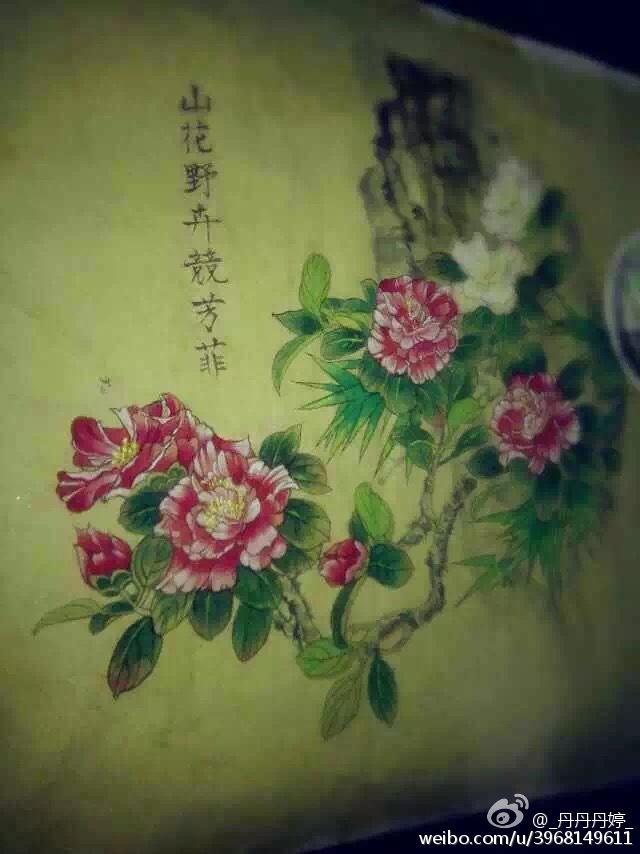 山花野卉競芳菲
@_丹丹丹婷_
weibo.com/u/3968149611